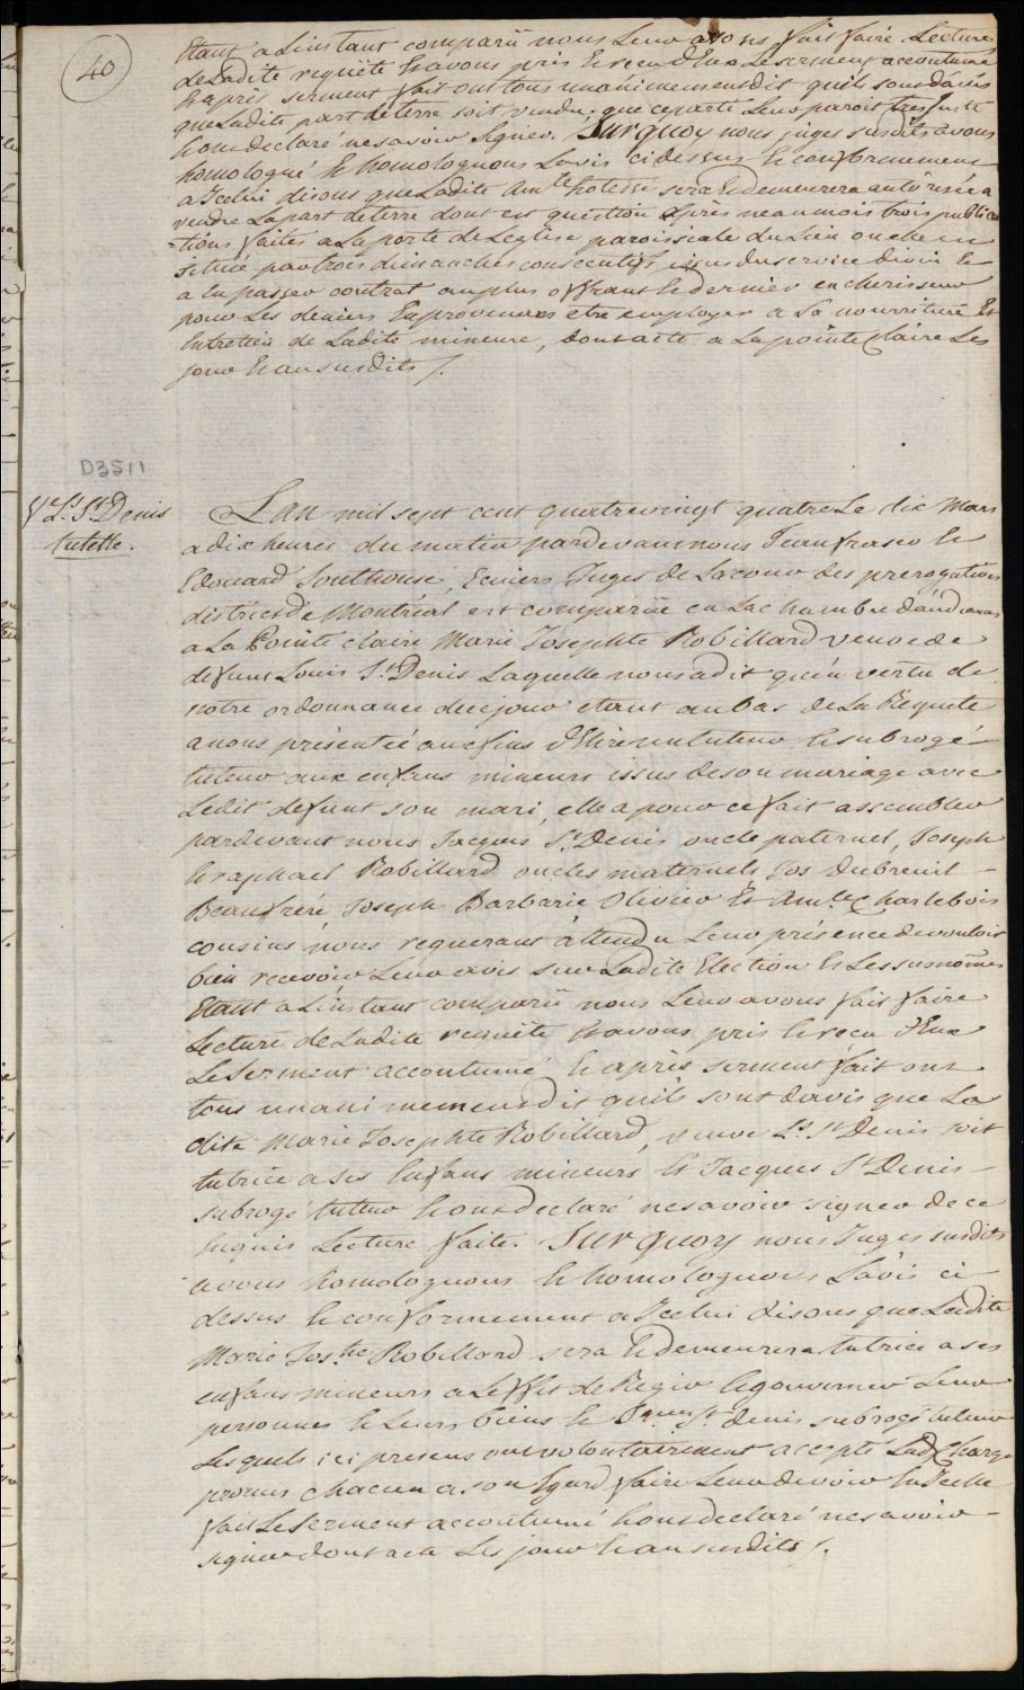 40
Etant a Linstant comparü nous Leur avons fait faire Lecture
de Ladite requête & avons pris & recu d'Eux Le serment accoutumé
& après serment fait ont tous unanimement dit quils sont davis
que Ladite part de terre soit vendu, que ce parti Leur paroit tres juste
& ont declaré ne savoir signer. Sur quoy nous juges susdits avons
homologué & homologuons Lavis ci dessus & conformement
a Icelui disons que Ladite Am.te hotesse sera & demeurera autorisée a
vendre La part de terre dont est question après neanmois trois publica
=tions faites a La porte de Leglise paroissiale du Lieu ou elle est
située par trois dimanches consecutifs issus du service divin &
a en passer contrat au plus offrant & dernier encherisseur
pour Les deniers En provenans etre employer a La nourriture Et
Entretien de Ladite mineure, dont acte a La pointe Claire Les
jour & an susdits /.
D3511
Ve Ls. St. Denis
tutelle.
Lan mil sept cent quatrevingt quatre Le dix Mars
a dix heures du matin pardevant nous Jean fraser &
Edouard Southouse, Ecuiers Juges de La cour des prerogatives
district de Montréal est comparüe en La chambre daudiances
a La Pointe claire Marie Josephte Robillard veuve de
defunt Louis St. Denis Laquelle nous a dit qu'en vertu de
notre ordonnance de ce jour etant au bas de La Requete
a nous présentée aux fins d'Elire un tuteur & subrogé
tuteur aux enfans mineurs issus de son mariage avec
Ledit defunt son mari, elle a pour ce fait assembler
pardevant nous Jacques St. Denis oncle paternel, Joseph
& raphael Robillard oncles maternels, Jos Dubreuil
Beaufrére, Joseph Barbarie Olivier Et Am.te Charlebois
cousins nous requerant attendu Leur présence de vouloir
bien recevoir Leur avis sur Ladite Election & Les susnomés
Etant a Linstant comparü nous Leur avons fait faire
Lecture de Ladite requête & avons pris & recu d'Eux
Le Serment accoutumé & après serment fait ont
tous unanimement dit quils sont davis que La
dite Marie Josephte Robillard, veuve Ls. St Denis soit
tutrice a ses Enfans mineurs & Jacques St Denis
subrogé tuteur & ont declaré ne savoir signer de ce
Enquis Lecture faite. Sur quoy nous Juges susdits
avons homologuons & homologuons Lavis ci
dessus & conformement a Icelui disons que Ladite
Marie Jos.te Robillard sera & demeurera tutrice a ses
enfans mineurs a Leffet de Regir & gouverner Leur
personnes & Leurs biens & St. denis subrogé tuteur
Les quels ici presens ont volontairement accepté Lad. Charge
promis chacun a son Egard faire Leur devoir En Icelle
fait Le Serment accoutumé & ont declaré ne savoir
signer dont acte Les jour & an susdits /.